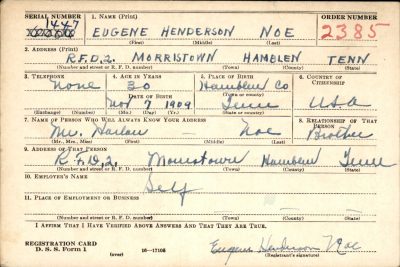 SERIAL NUMBER 1. NAME (Print) ORDER NUMBER
1447 EUGENE HENDERSON NOE 2385
(First) (Middle) (Last)
2. ADDRESS (Print)
R.F.D.2. MORRISTOWN HAMBLEN TENN
(Number and street or R. F. D. number) (Town) (County) (State)
3. TELEPHONE 4. AGE IN YEARS 5. PLACE OF BIRTH 6. COUNTRY OF CITIZENSHIP
None 30 Hamblen Co
DATE OF BIRTH (Town or county)
Nov 7 1909 Tenn U.S.A
(Exchange) (Number) (Mo.) (Day) (Yr.) (State or country)
7. NAME OF PERSON WHO WILL ALWAYS KNOW YOUR ADDRESS 8. RELATIONSHIP OF THAT PERSON
Mr. Harlow — Noe Brother
(Mr., Mrs., Miss) (First) (Middle) (Last)
9. ADDRESS OF THAT PERSON
R.F.D.2. Morristown Hamblen Tenn
(Number and street or R. F. D. number) (Town) (County) (State)
10. EMPLOYER'S NAME
Self
11. PLACE OF EMPLOYMENT OR BUSINESS
(Number and street or R. F. D. number) (Town) (County) (State)
I AFFIRM THAT I HAVE VERIFIED ABOVE ANSWERS AND THAT THEY ARE TRUE.
REGISTRATION CARD
D. S. S. Form 1 (over) 16—17105 Eugene Henderson Noe
(Registrant's signature)